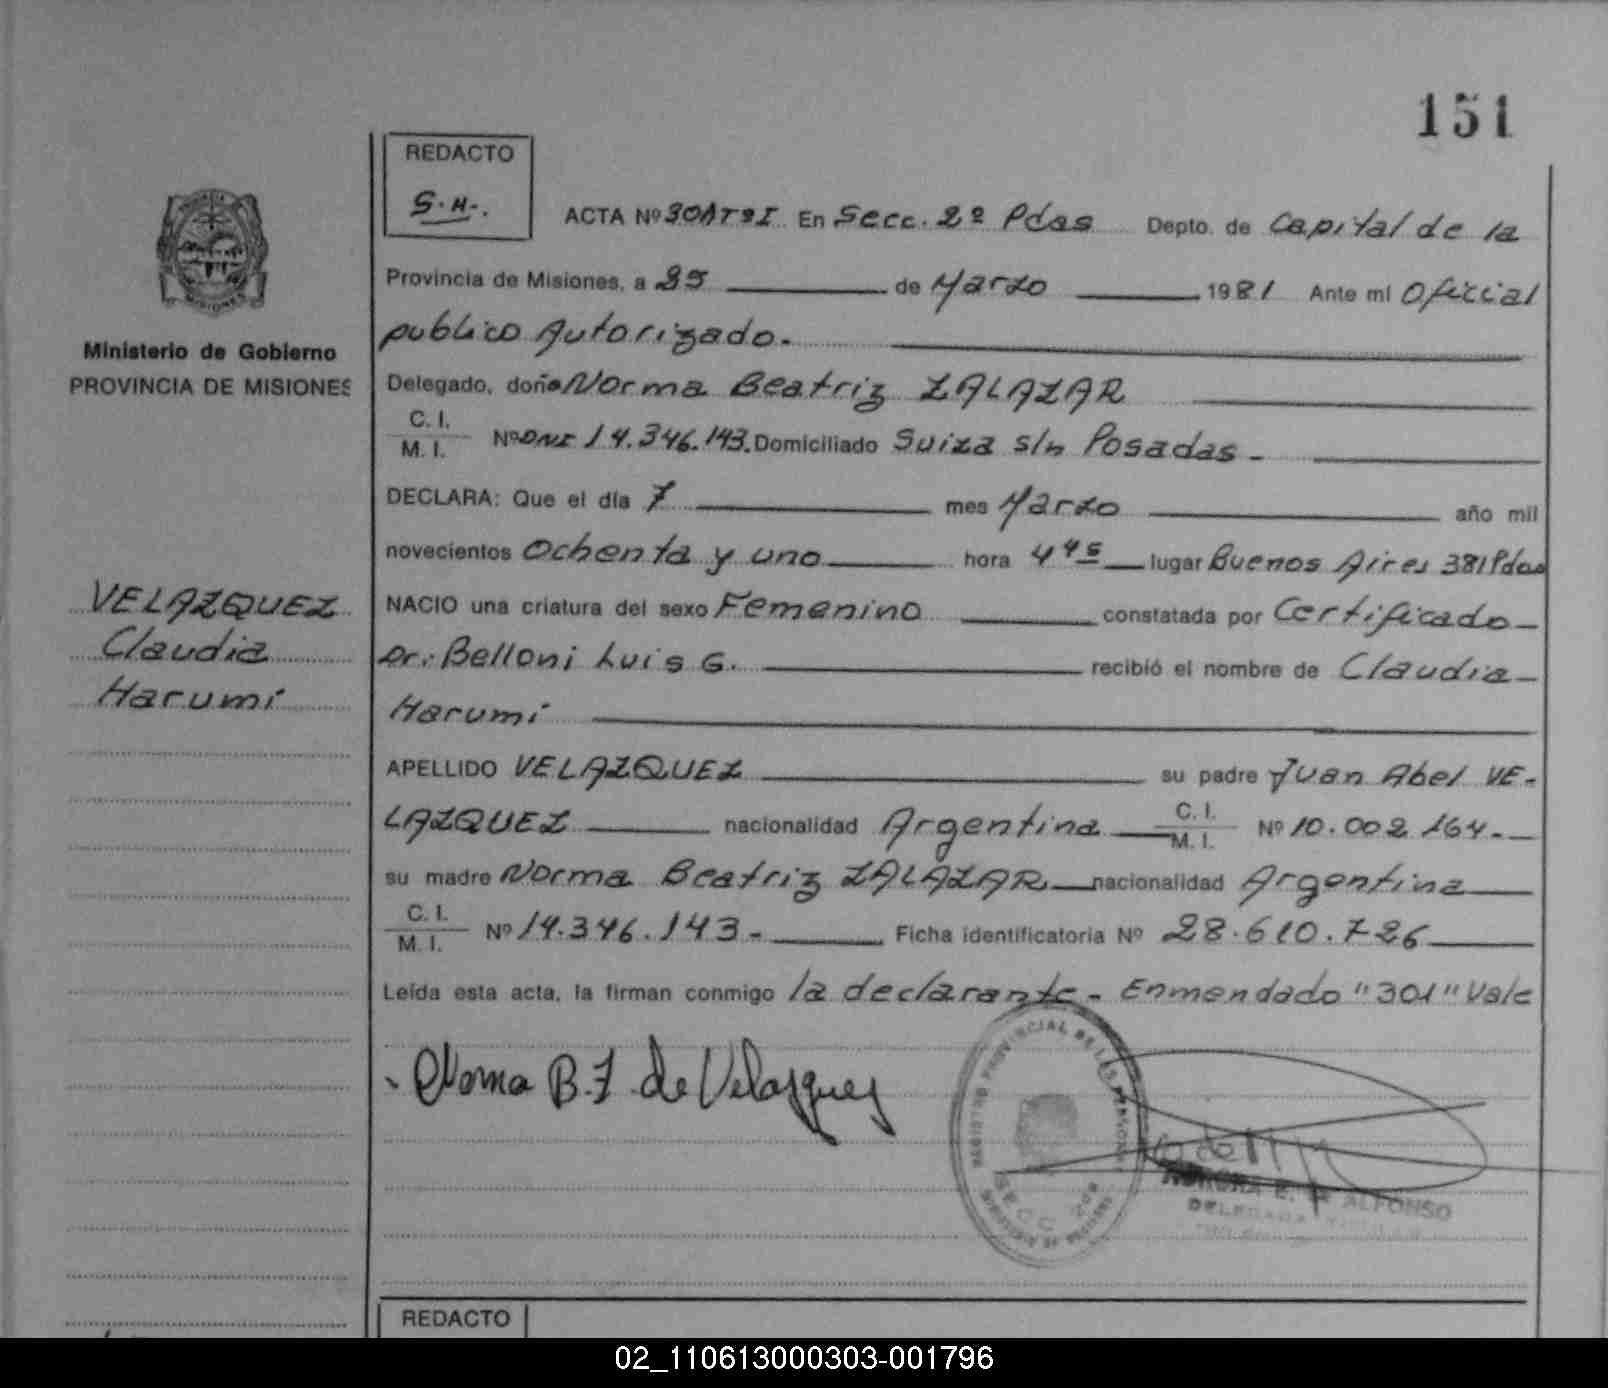 151
REDACTO
S.H-.
ACTA Nº 301 T2I En Secc. 2º Pdas Depto. de Capital de la
Provincia de Misiones, a 25 de Marzo 1981 Ante mí Oficial
publico Autorizado.
Ministerio de Gobierno
PROVINCIA DE MISIONES
Delegado, doña Norma Beatriz ZALAZAR
C. I.
M. I. Nº DNI 14.346.143. Domiciliado Suiza s/n Posadas -
DECLARA: Que el día 7 mes Marzo año mil
novecientos Ochenta y uno hora 4 45 lugar Buenos Aires 381 Pdas
VELAZQUEZ
Claudia
Harumi
NACIO una criatura del sexo Femenino constatada por Certificado
Dr.: Belloni Luis G. recibió el nombre de Claudia
Harumi
APELLIDO VELAZQUEZ su padre Juan Abel VE-
LAZQUEZ nacionalidad Argentina C. I. M. I. Nº 10.002.164.-
su madre Norma Beatriz ZALAZAR nacionalidad Argentina
C. I.
M. I. Nº 14.346.143- Ficha identificatoria Nº 28.610.726
Leída esta acta, la firman conmigo la declarante - Enmendado "301" Vale
Norma B. Z. de Velazquez
REGISTRO PROVINCIAL DE LAS PERSONAS
SECC 2da
E. ALFONSO
DELEGADA TITULAR
REDACTO
02_110613000303-001796